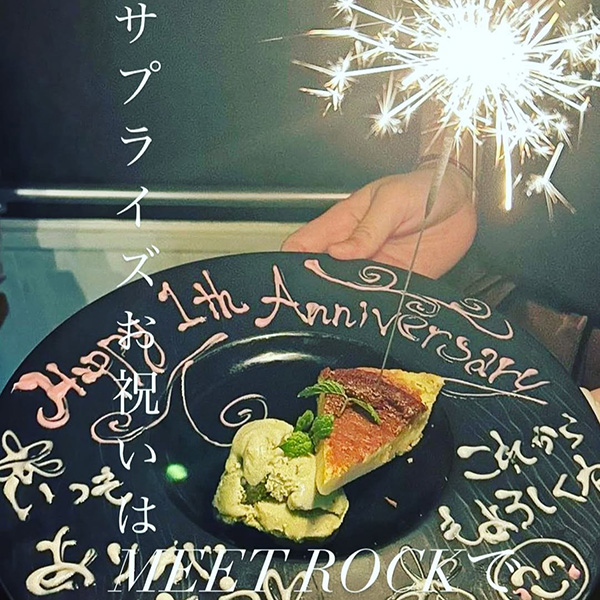 サプライズお祝いは
MEET ROCKで
Happy 1th Anniversary
いつも
これから
よろしくね